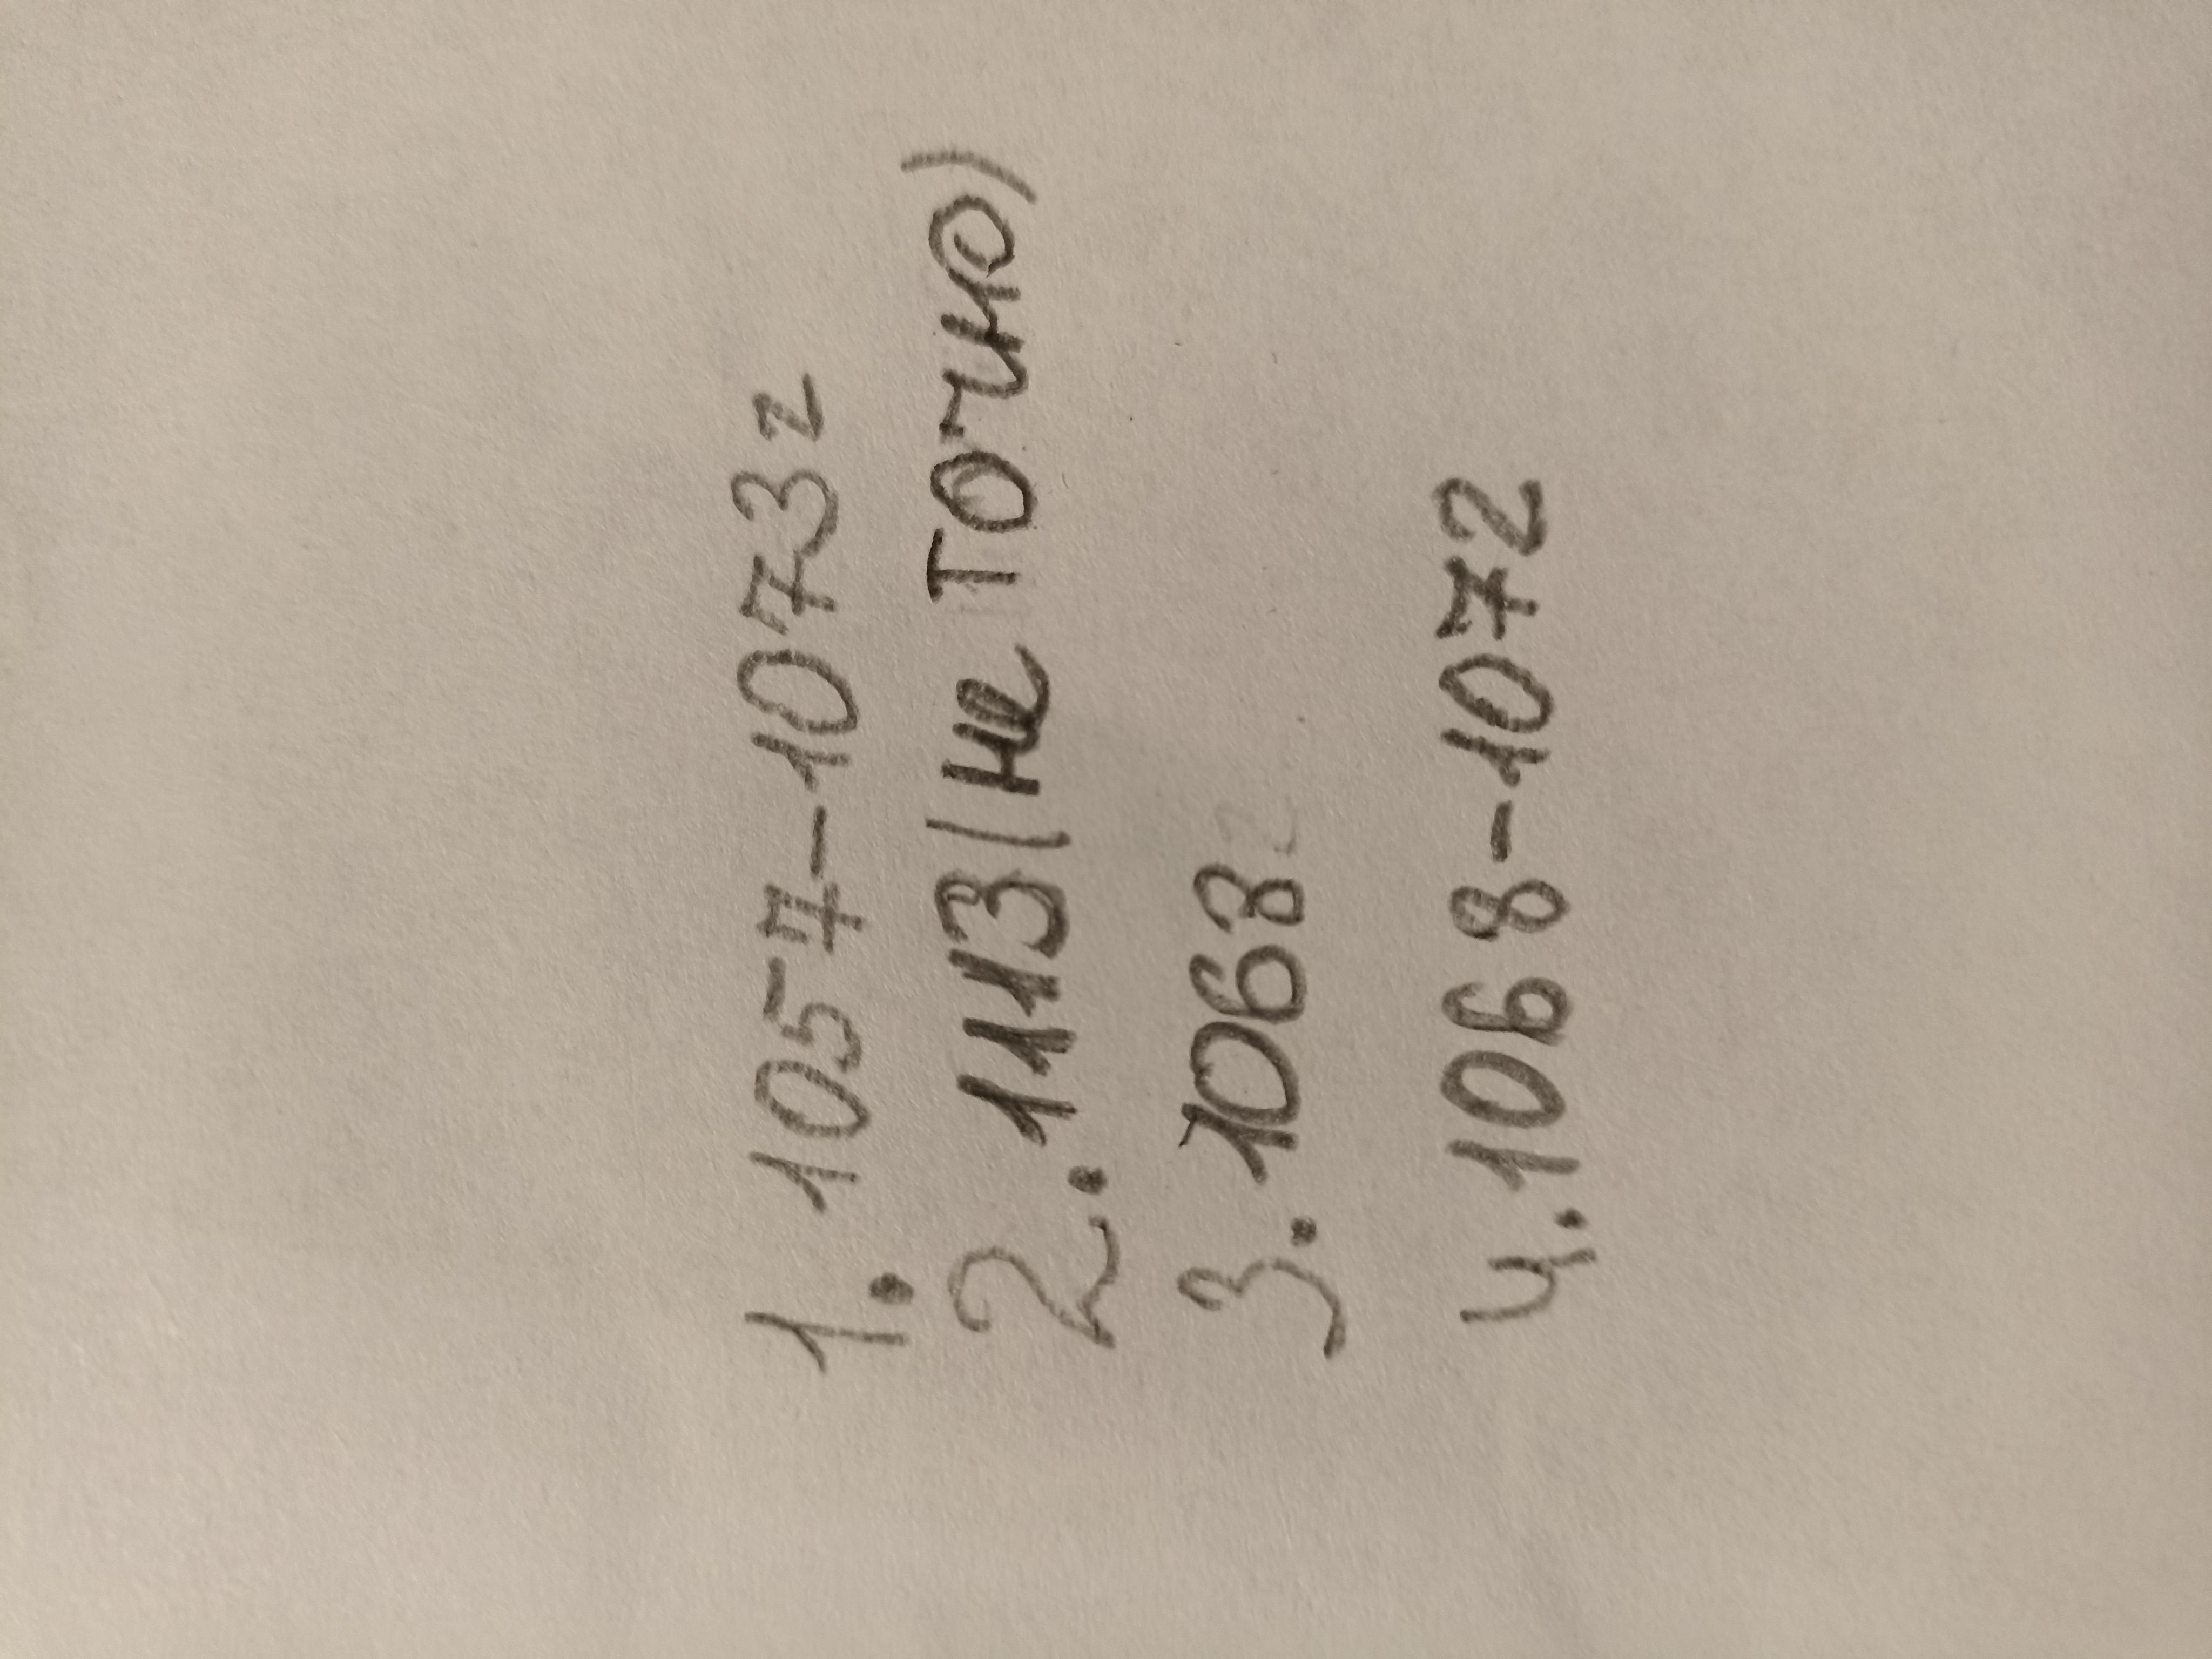 1. 1057-1073г
2. 1113(не точно)
3. 1068г
4. 1068-1072